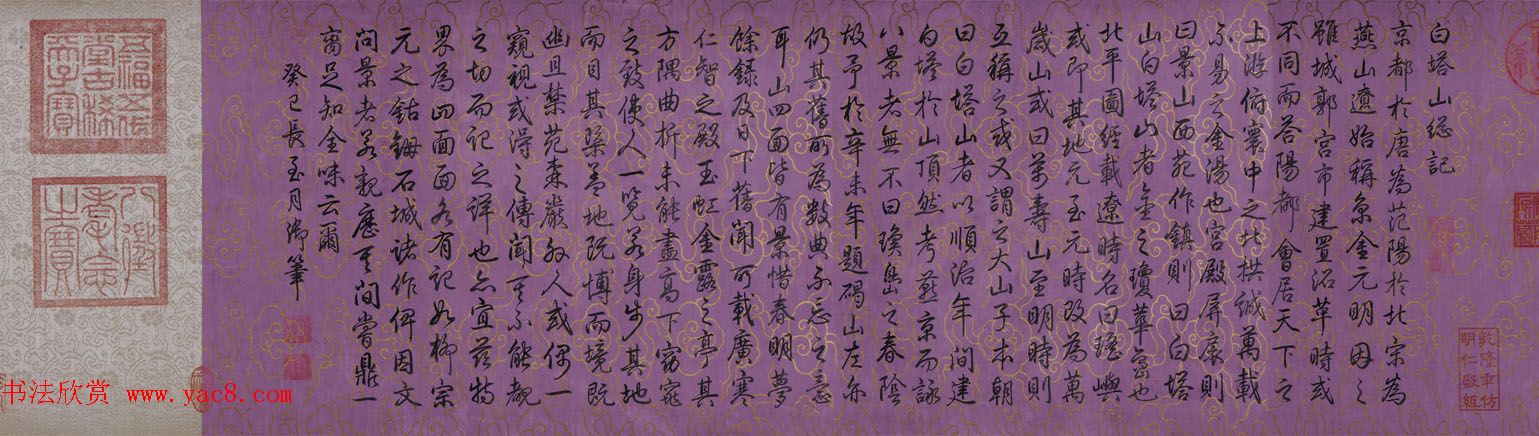 白塔山総記
京都於唐為范陽於北宋為
燕山遼始稱京金元明因之
雖城郭宮市建置沿革時或
不同而答陽都會居天下之
上游俯寰中之北拱誠萬載
不易之金湯也宮殿屏扆則
曰景山西苑作鎮則曰白塔
山白塔山者金之瓊華島也
北平圖經載遼時名曰瑤嶼
或即其地元至元時改為萬
歲山或曰萬壽山至明時則
互稱之或又謂之大山子本朝
曰白塔山者以順治年間建
白塔於山頂然考燕京而詠
八景者無不曰瓊島之春陰
故予於辛未年題碣山左亦
仍其舊所為數典不忘之意
耳山四面皆有景惜春明夢
餘錄及日下舊聞所載廣寒
仁智之殿玉虹金露之亭其
方隅曲折未能盡高下窈窕
之致使人一覽若身步其地
而目其槩盖地既博而境既
幽且禁苑森嚴外人或偶一
窺視或得之傳聞其不能覩
之切而記之詳也亦宜茲特
界為四面面各有記如柳宗
元之鈷鉧石城諸作俾因文
問景者若親歷其間嘗鼎一
臠足知全味云爾
癸巳長至月御筆
乾隆年仿
明仁殿紙
五福五代
堂古稀
天子寶
八徵
耄念
之寶
书法欣赏 www.yac8.com